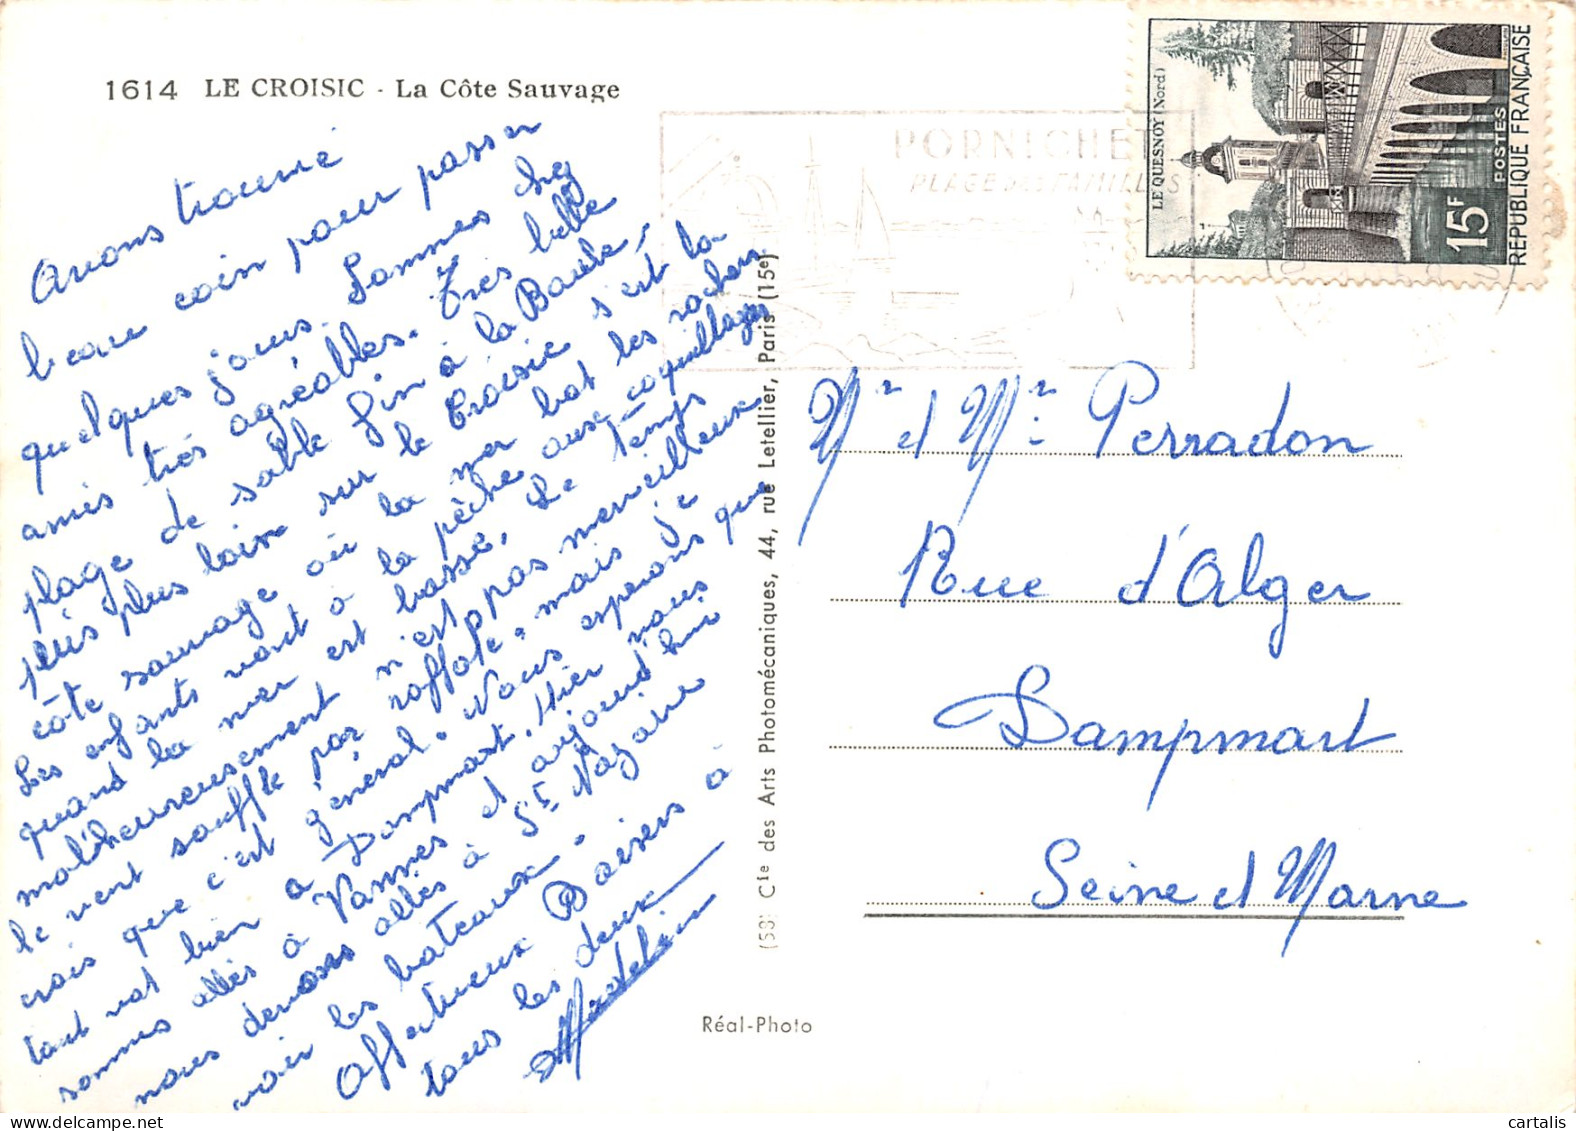 1614 LE CROISIC - La Côte Sauvage
Avons trouvé
beau coin pour passer
quelques jours. Sommes chez
amis très agréables. Très belle
plage de sable fin à la Baule,
puis plus loin sur le Croisic s'est la
côte sauvage où la mer bat les rochers
Les enfants vont à la pêche aux coquillages
quand la mer est basse. Le temps
malheureusement n'est pas merveilleux
le vent souffle par raffale, mais je
crois que c'est général. Nous espérons que
tout vat bien à Dampmart. Hier nous
sommes allés à Vannes et aujourd'hui
nous devons allés à St Nazaire
voir les bateaux.
Affectueux Baisers à
tous les deux
Madeleine
PORNICHET
PLAGE DES FAMILLES
LE QUESNOY (Nord)
15F
POSTES
REPUBLIQUE FRANÇAISE
Mr et Mme Perradon
Rue d'Alger
Dampmart
Seine et Marne
Cie des Arts Photomécaniques, 44, rue Letellier, Paris (15e)
Réal-Photo
cartalis